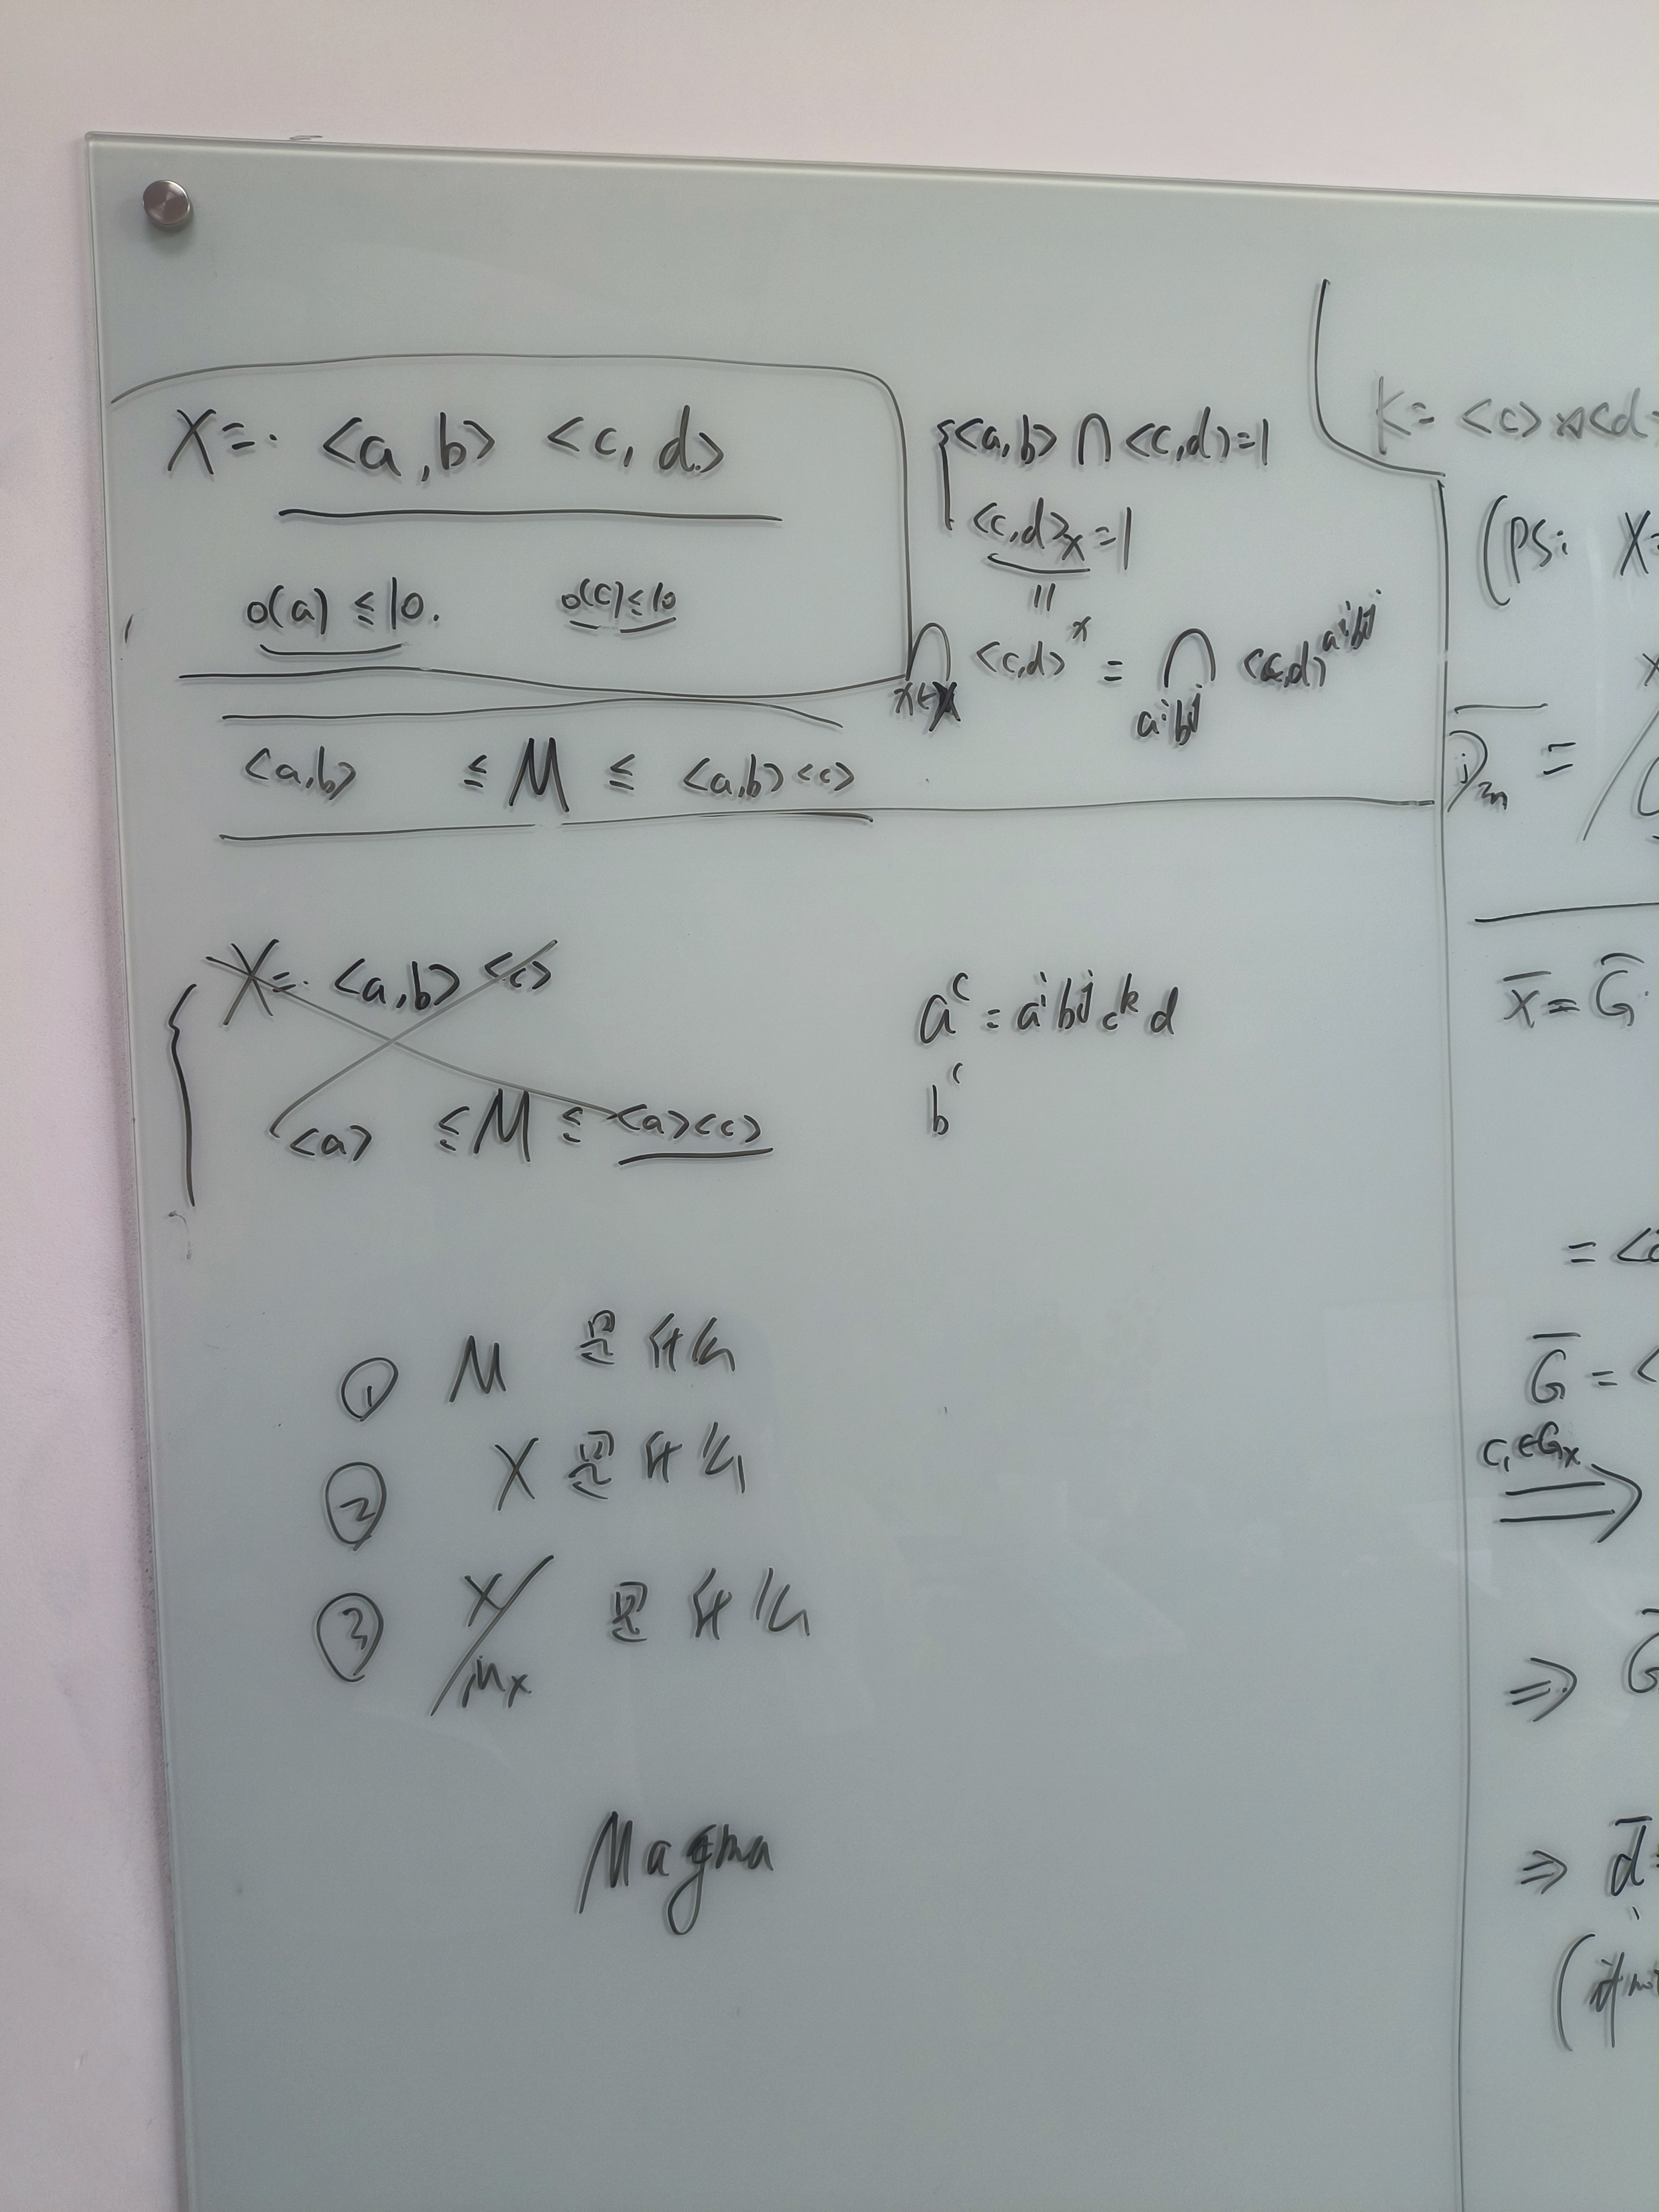 X = <a,b> <c,d>
o(a) ≤ 10. o(c) ≤ 10
<a,b> ∩ <c,d> = 1
<c,d>_X = 1
||
∩_{x∈X} <c,d>^x = ∩_{a^i b^j} <c,d>^{a^i b^j}
<a,b> ≤ M ≤ <a,b><c>
X = <a,b> <c>
<a> ≤ M ≤ <a><c>
a^c = a^i b^j c^k d
b^c
① M 是什么
② X 是什么
③ X/M_X 是什么
Magma
K = <c> <d>
(PS: X =
D_{2n} =
X̄ = Ḡ
= <
Ḡ = <
c_1 ∈ G_X
⇒
⇒ Ḡ
⇒ d̄ =
(if